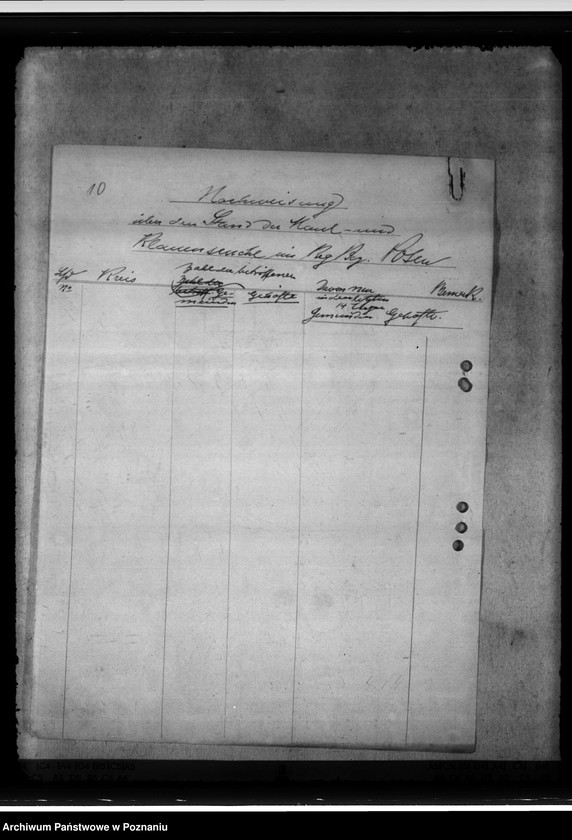 10
Nachweisung
über den Stand der Maul- und
Klauenseuche im Reg. Bez. Posen
Lfd Nr
Kreis
Zahl der betroffenen
Zahl der
Gemeinden
Gehöfte
Davon neu
in den letzten
14 Tagen
Gemeinden Gehöfte.
Bemerk.
Archiwum Państwowe w Poznaniu